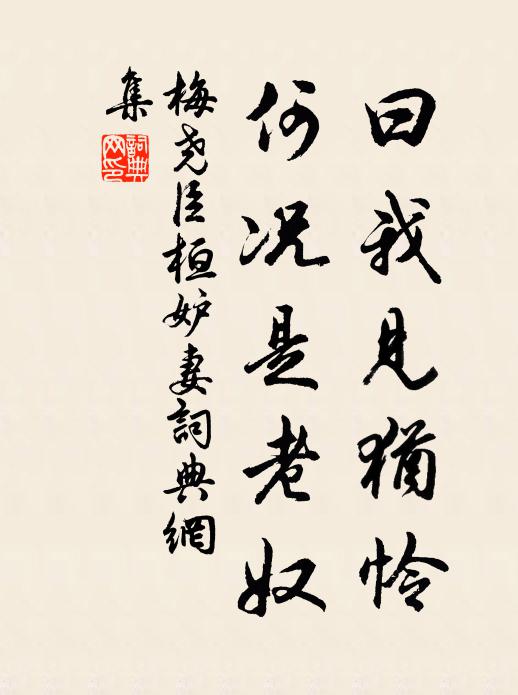 曰我見猶怜
何況是老奴
梅尧臣桓妒妻詞典網
集
詞典
网印